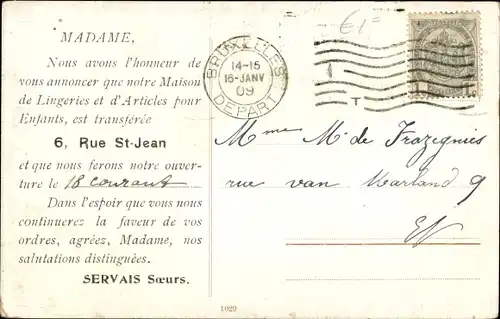 MADAME,
Nous avons l'honneur de
vous annoncer que notre Maison
de Lingeries et d'Articles pour
Enfants, est transférée
6, Rue St-Jean
et que nous ferons notre ouver-
ture le 18 courant
Dans l'espoir que vous nous
continuerez la faveur de vos
ordres, agréez, Madame, nos
salutations distinguées.
SERVAIS Sœurs.
BRUXELLES
14-15
16-JANV
09
DEPART
T
1 1
Mme M. de Frazegnies
rue van Marland 9
EV
1029